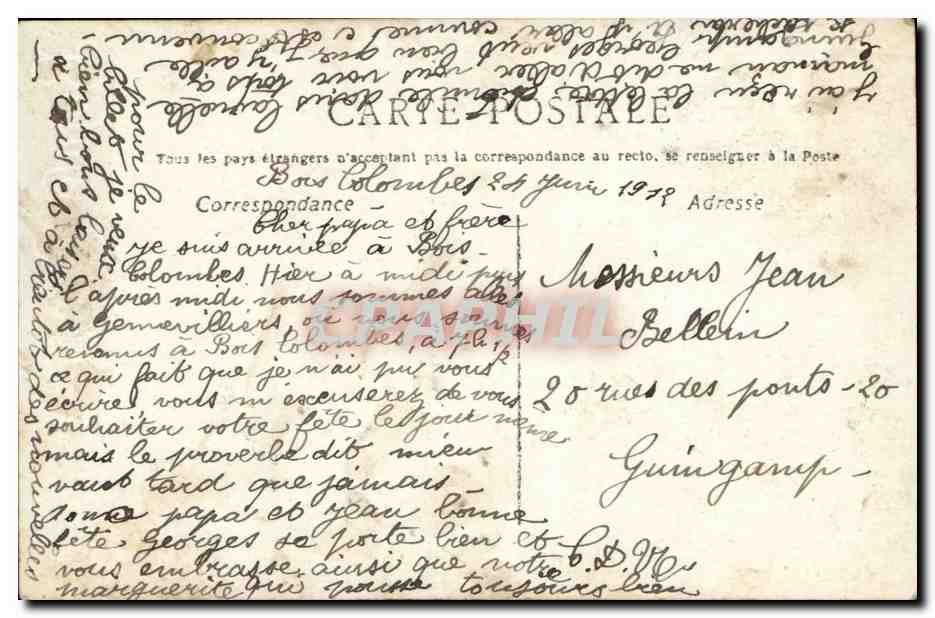 CARTE POSTALE
Tous les pays étrangers n'acceptant pas la correspondance au recto, se renseigner à la Poste
Bois Colombes 24 Juin 1912
Correspondance
Adresse
Cher papa et frère
je suis arrivée à Bois-
Colombes. Hier à midi puis
l'après midi nous sommes allés
à Gennevilliers, ou nous sommes
revenus à Bois Colombes, à 7h 1/2
ce qui fait que je n'ai pu vous
écrire vous m'excuserez de vous
souhaiter votre fête le jour même
mais le proverbe dit mieux
vaut tard que jamais
papa et Jean bonne
fête Georges se porte bien et
vous embrasse ainsi que notre
marguerite qui pousse toujours bien
Messieurs Jean
Bellein
20 rues des ponts - 20
Guingamp -
CPARPHIL
j'ai reçu la lettre dans laquelle
maman me dit d'aller vous voir
Georges veut bien que j'y aille
comme c'est convenu
pour le
billet je veux
bien
à tous et à
bientôt des nouvelles